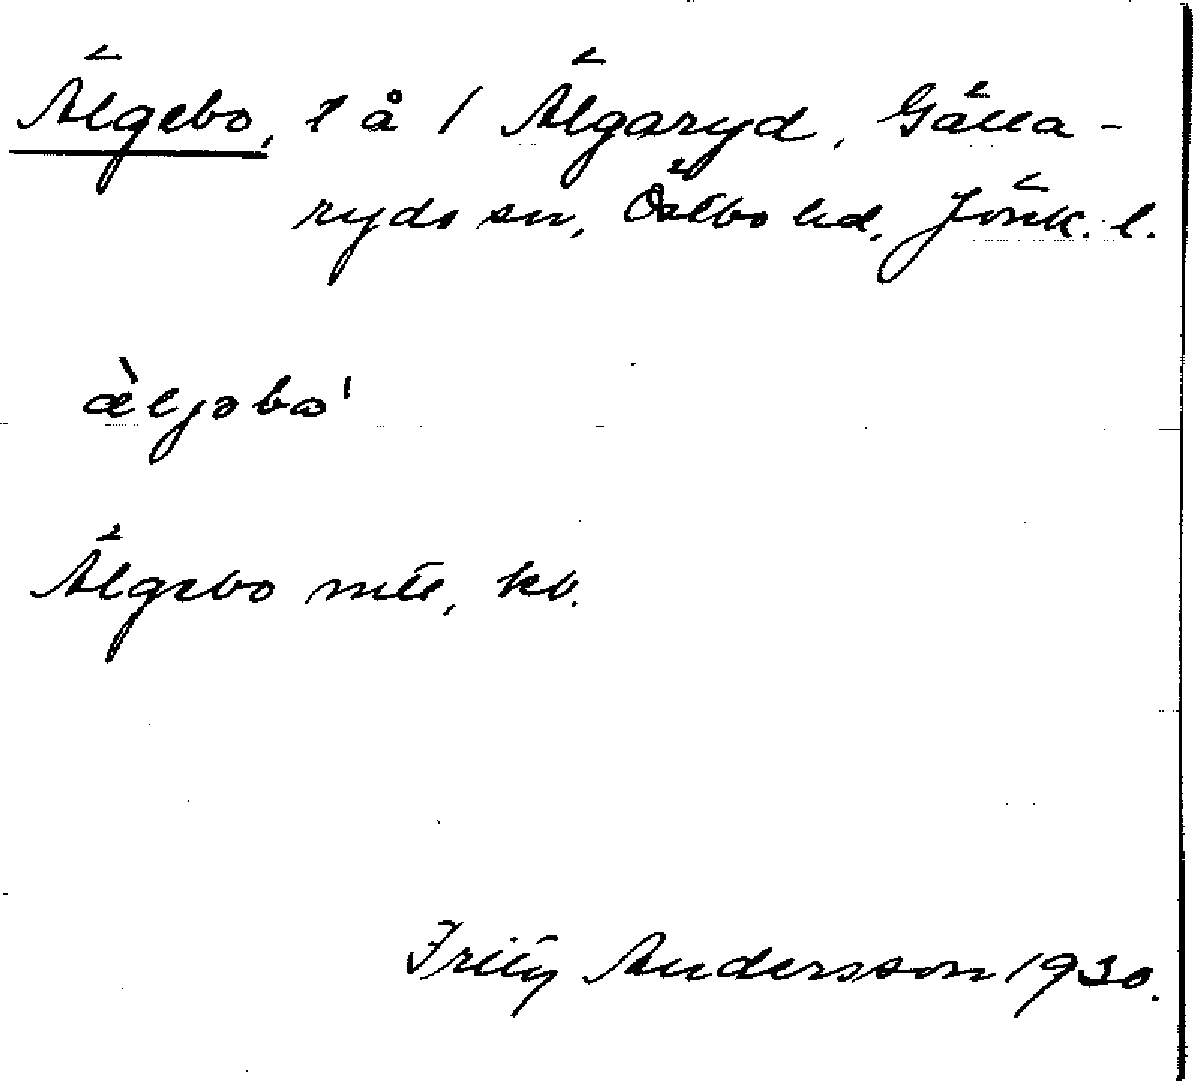 Älgebo, t å / Älgaryd, Gälla-
ryds sn, Östbo hd, Jönk. l.
æ̀ljəbo'
Älgebo mtl, kb.
Fritz Andersson 1930.